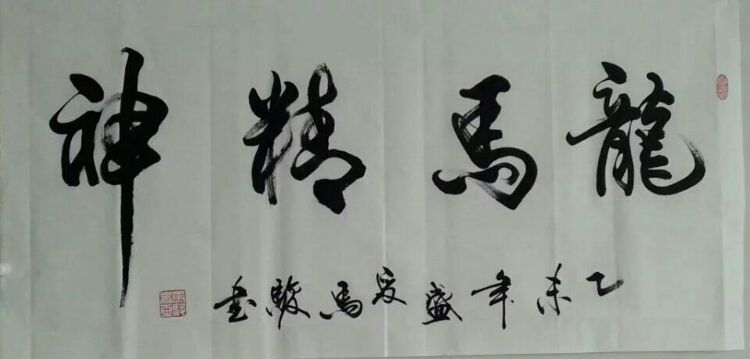 龍馬精神
乙未年盛夏馬駿書